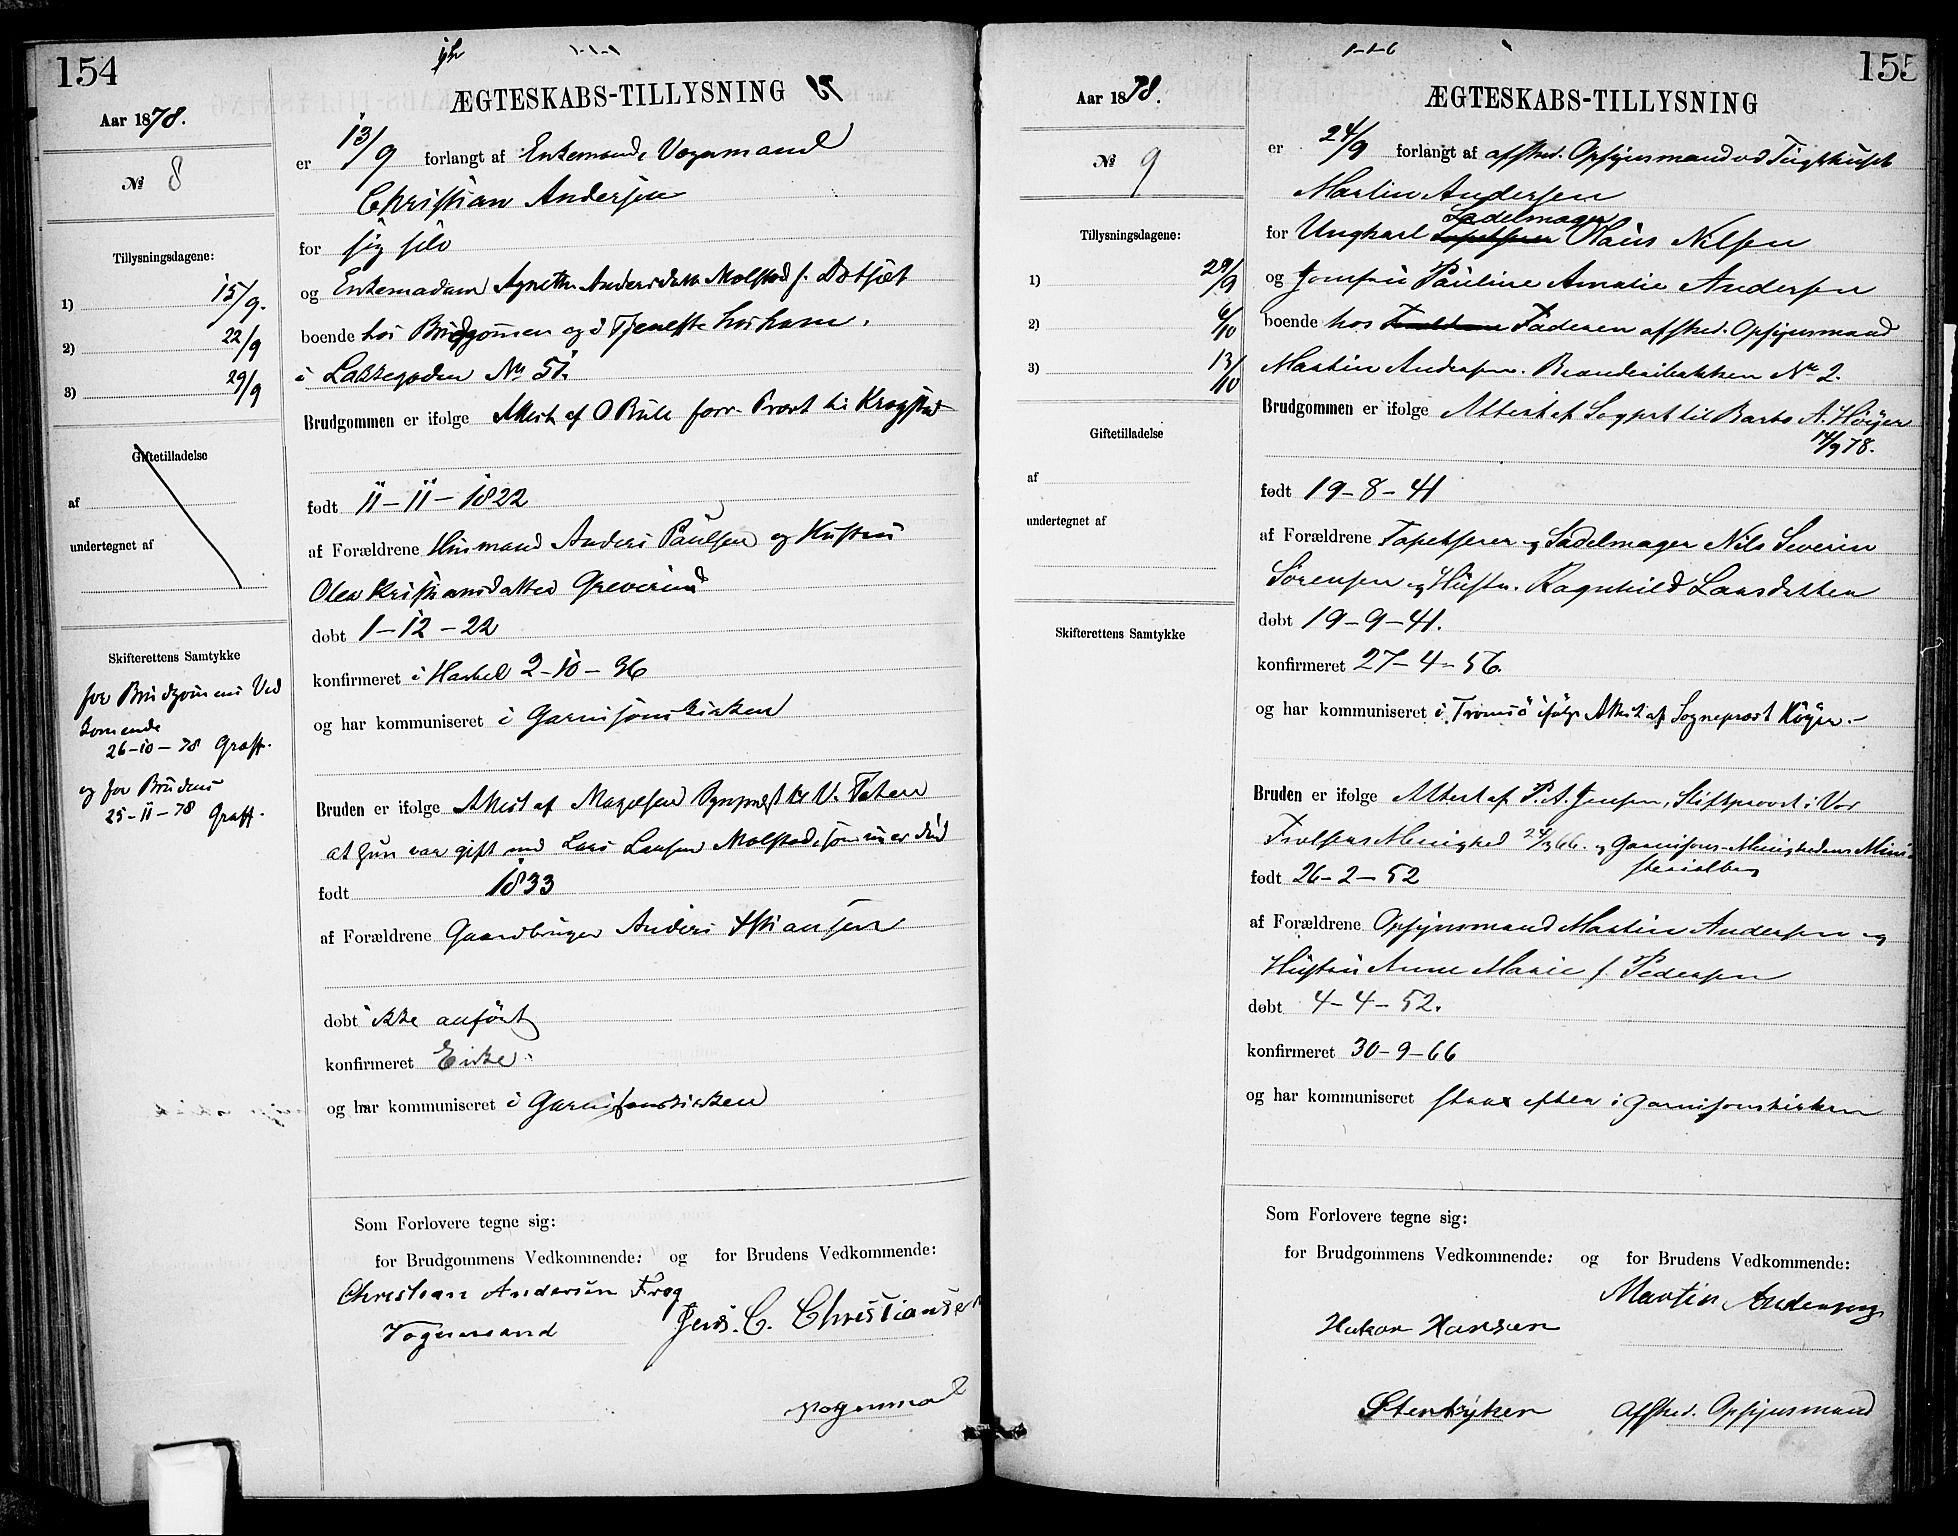 154
Aar 1878.
ÆGTESKABS-TILLYSNING
№ 8
er 13/9 forlangt af Enkemand, Vognmand
Christian Andersen
for sig selv
Tillysningsdagene:
1) 15/9.
2) 22/9
3) 29/9
og Enkemadam Agnethe Andersdatter Molstad f.
boende hos Brudgommen og i Tjeneste hos ham.
i Lakkegaden No 51.
Giftetilladelse
af
undertegnet af
Brudgommen er ifølge Attest af O Bull forr. Præst til Krogstad
født 11-11-1822
af Forældrene Husmand Anders Paulsen og Hustru
Olea Kristiansdatter Greverud
døbt 1-12-22
konfirmeret i 2-10-36
og har kommuniseret i Garnisonskirken
Skifterettens Samtykke
for Brudgommens Ved
kommende
26-10-78 Graff.
og for Brudens
25-11-78 Graff.
Bruden er ifølge Attest af Magelsen Sognepræst til V. Toten
at hun var gift med Lars Larsen Molstad, som nu er død
født 1833
af Forældrene Gaardbruger Anders
døbt ikke anført
konfirmeret Ei
og har kommuniseret i Garnisonskirken
Som Forlovere tegne sig:
for Brudgommens Vedkommende: og for Brudens Vedkommende:
Christian Andersen Frog
Jens. C. Christiansen
Vognmand
Vognmand
155
Aar 1878.
ÆGTESKABS-TILLYSNING
№ 9
er 24/9 forlangt af afsked. Opsynsmand ved Tugthuset
Martin Andersen
Sadelmager
for Ungkarl Tapetserer Olaus Nilsen
Tillysningsdagene:
1) 29/9
2) 6/10
3) 13/10
og Jomfru Pauline Amalie Andersen
boende hos Faderen afsked. Opsynsmand
Martin Andersen. Brænderibakken No 2.
Giftetilladelse
af
undertegnet af
Brudgommen er ifølge Attest af Sogprst til Barbo A. Höyer
14/9 78.
født 19-8-41
af Forældrene Tapetserer og Sadelmager Nils Severin
Sörensen og Hustru. Ragnhild Larsdatter
døbt 19-9-41.
konfirmeret 27-4-56.
og har kommuniseret i Tromsö ifølge Attest af Sognepræst Höyer
Skifterettens Samtykke
Bruden er ifølge Attest af P. A. Jensen, Stiftsprovst i Vor
Frelsers Menighed 66. og Garnisons-Menighedens Mini-
sterialbog
født 26-2-52
af Forældrene Opsynsmand Martin Andersen og
Hustru Anne Marie f. Pedersen
døbt 4-4-52.
konfirmeret 30-9-66
og har kommuniseret strax efter i Garnisonskirken
Som Forlovere tegne sig:
for Brudgommens Vedkommende: og for Brudens Vedkommende:
Martin Andersen
Hakon Hansen
Stentrykker
Afsked. Opsynsmand